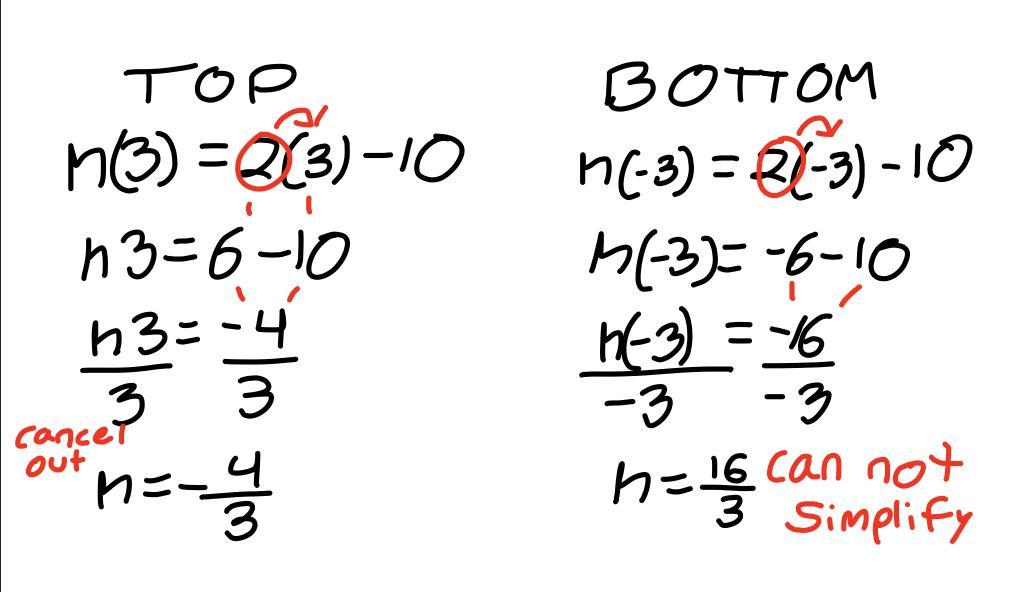 TOP
n(3) = 2(3) - 10
n3 = 6 - 10
n3 = -4
3 3
cancel out
n = - 4/3
BOTTOM
n(-3) = 2(-3) - 10
n(-3) = -6 - 10
n(-3) = -16
-3 -3
n = 16/3
can not
simplify